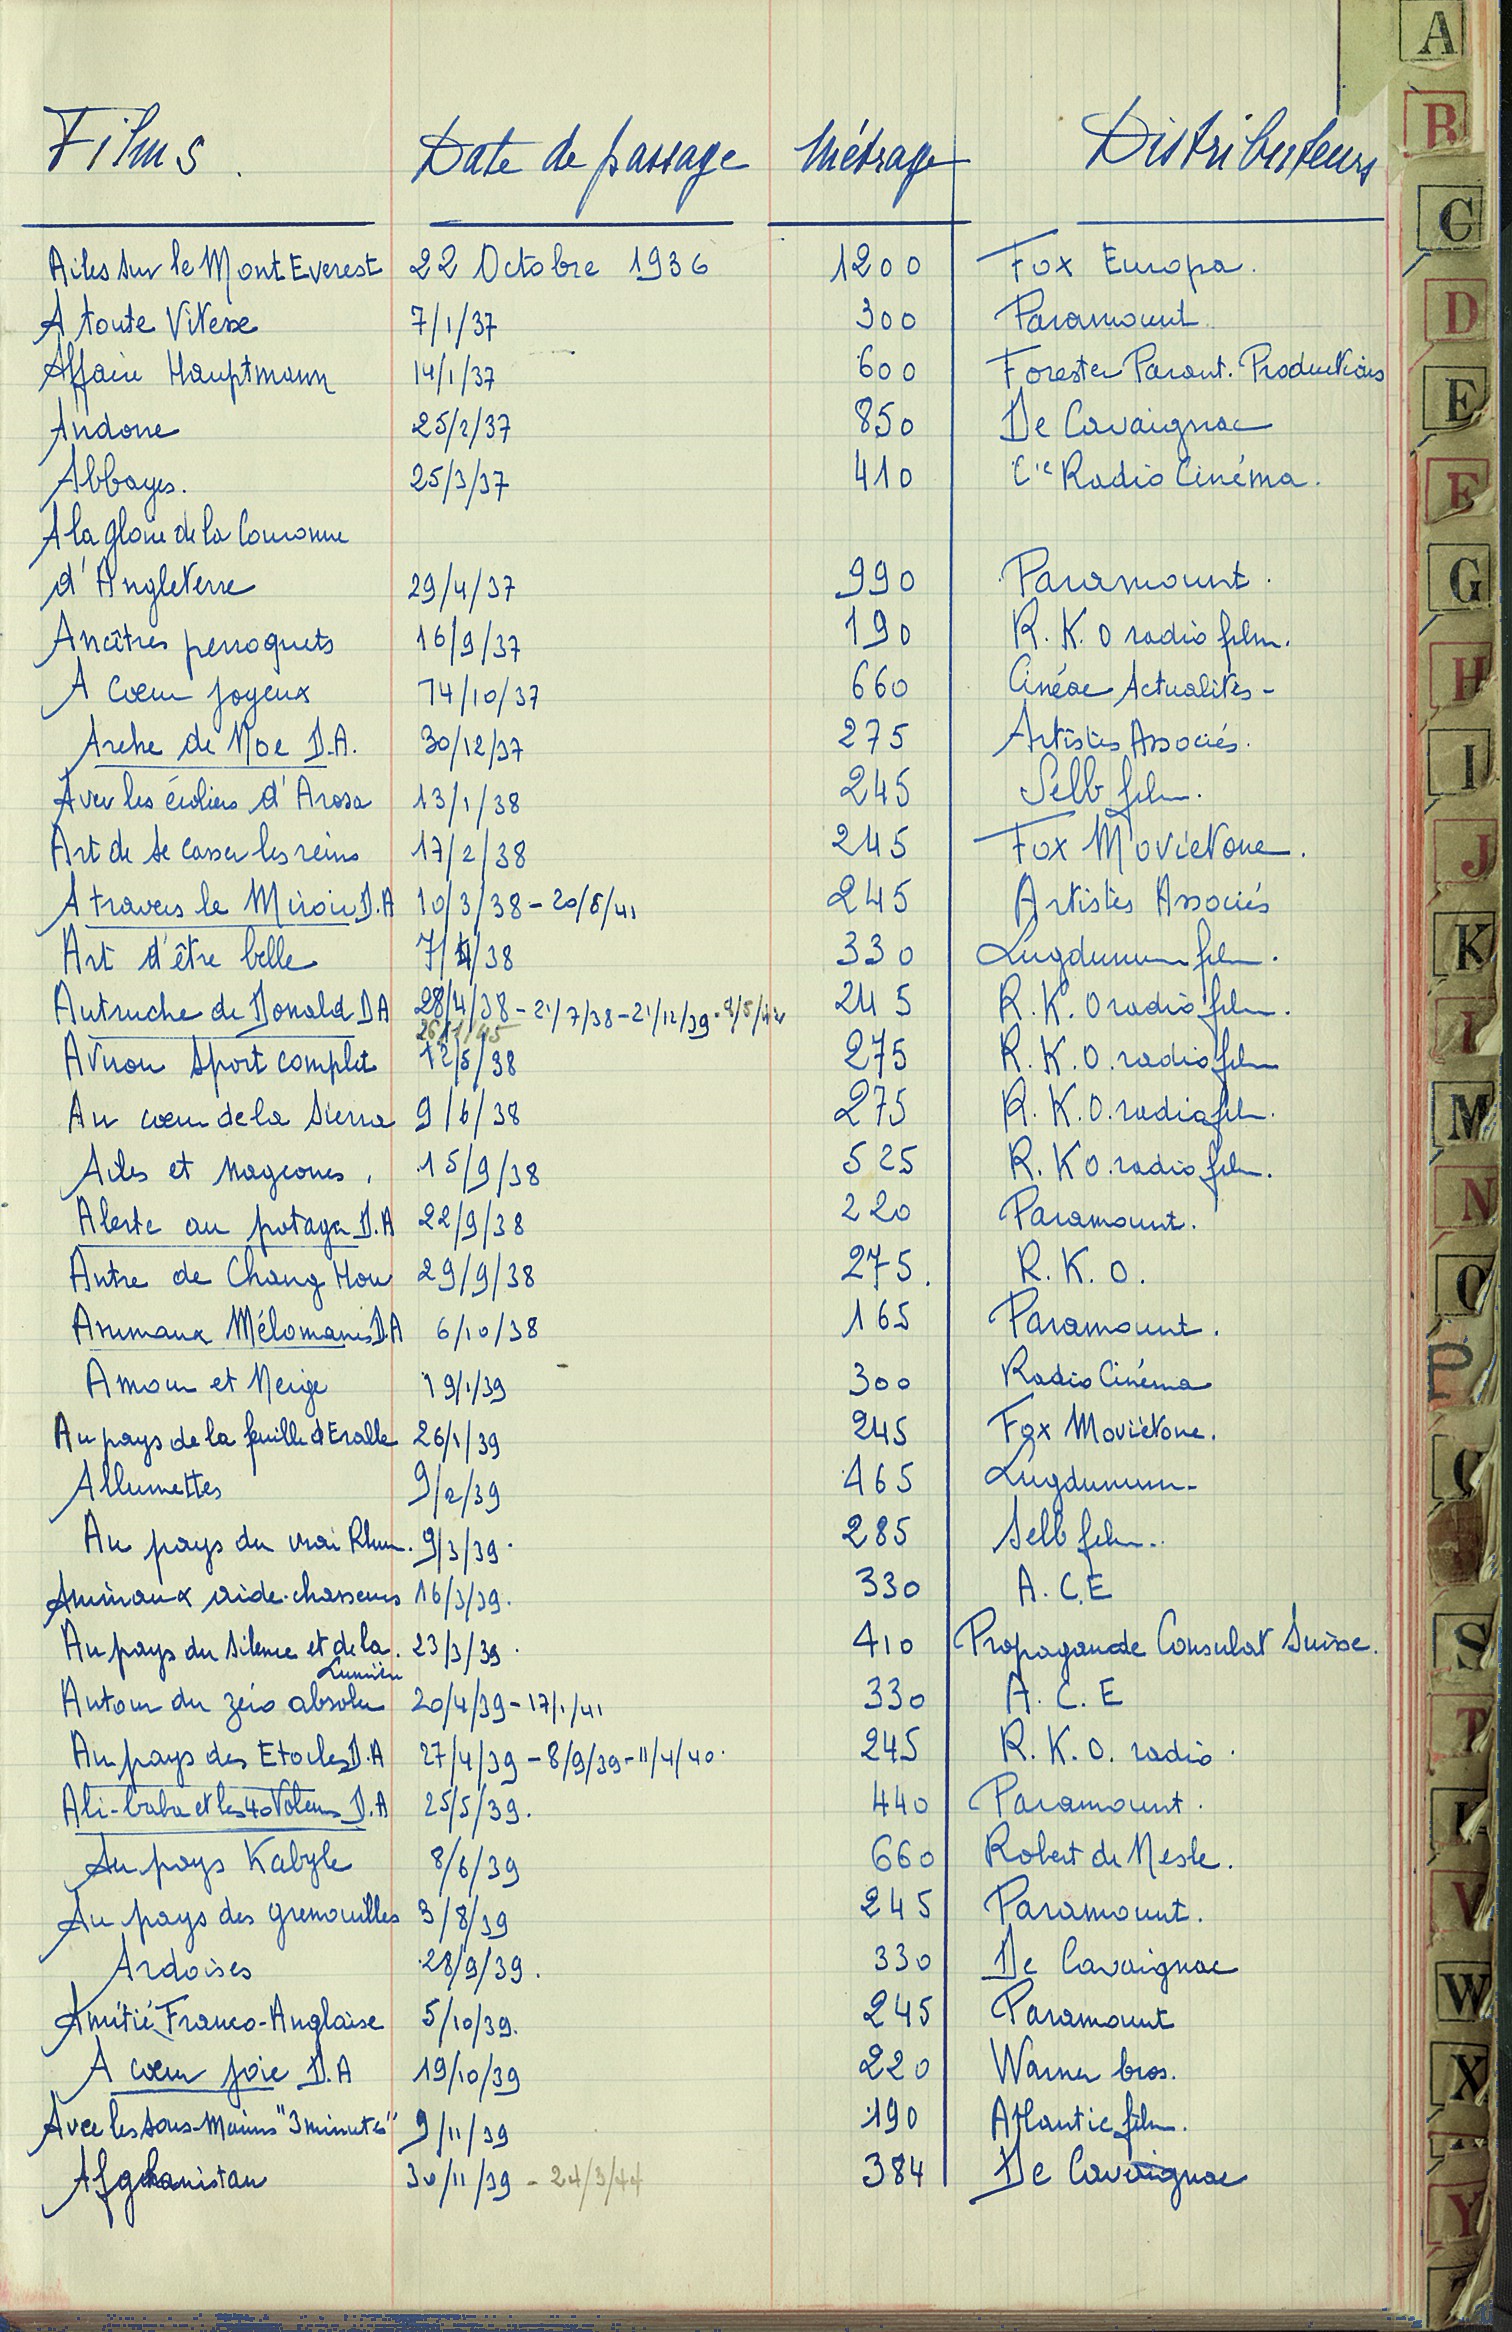 Films. Date de passage Métrage Distributeurs
Ailes sur le Mont Everest 22 Octobre 1936 1200 Fox Europa.
A toute Vitesse 7/1/37 300 Paramount
Affaire Hauptmann 14/1/37 600 Forester Parant. Productions
Andorre 25/2/37 850 De Cavaignac
Abbayes. 25/3/37 410 Cie Radio Cinéma.
A la gloire de la Couronne
d'Angleterre 29/4/37 990 Paramount.
Ancêtres perroquets 16/9/37 190 R.K.O radio film.
A Cœur joyeux 14/10/37 660 Cinéac Actualités -
Arche de Noe D.A. 30/12/37 275 Artistes Associés.
Avec les écoliers d'Arosa 13/1/38 245 Selb film.
Art de se casser les reins 17/2/38 245 Fox Movietone.
A travers le Miroir D.A 10/3/38 - 20/5/41 245 Artistes Associés
Art d'être belle 7/4/38 330 Lugdunum film.
Autruche de Donald DA 28/4/38 - 21/7/38 - 21/12/39 - 245 R.K.O radio film.
26/11/45
Aviron Sport complet 12/5/38 275 R.K.O. radio film
Au cœur de la Sierra 9/6/38 275 R.K.O. radio film.
Ailes et nageoires. 15/9/38 525 R.K.O. radio film.
Alerte au potager D.A 22/9/38 220 Paramount.
Antre de Chang How 29/9/38 275. R.K.O.
Animaux Mélomanes D.A 6/10/38 165 Paramount.
Amour et Neige 19/1/39 300 Radio Cinéma
Au pays de la feuille d'Eralle 26/1/39 245 Fox Movietone.
Allumettes 9/2/39 465 Lugdunum -
Au pays du vrai Rhum. 9/3/39. 285 Selb film.
Animaux aide-chasseurs 16/3/39. 330 A.C.E
Au pays du silence et de la. 23/3/39. 410 Propagande Consulat Suisse.
Lumière
Autour du zéro absolu 20/4/39 - 17/1/41 330 A.C.E
Au pays des Etoiles D.A 27/4/39 - 8/9/39 - 11/4/40. 245 R.K.O. radio.
Ali-baba et les 40 Voleurs D.A 25/5/39. 440 Paramount.
Au pays Kabyle 8/6/39 660 Robert de Nesle.
Au pays des grenouilles 3/8/39 245 Paramount.
Ardoises 28/9/39. 330 De Cavaignac
Amitié Franco-Anglaise 5/10/39. 245 Paramount
A cœur joie D.A 19/10/39 220 Warner bros.
Avec les sous-Marins "3 minutes" 9/11/39 190 Atlantic film.
Afghanistan 30/11/39 - 24/3/44 384 De Cavaignac
A
B
C
D
E
F
G
H
I
J
K
L
M
N
O
P
Q
S
T
V
W
X
Y